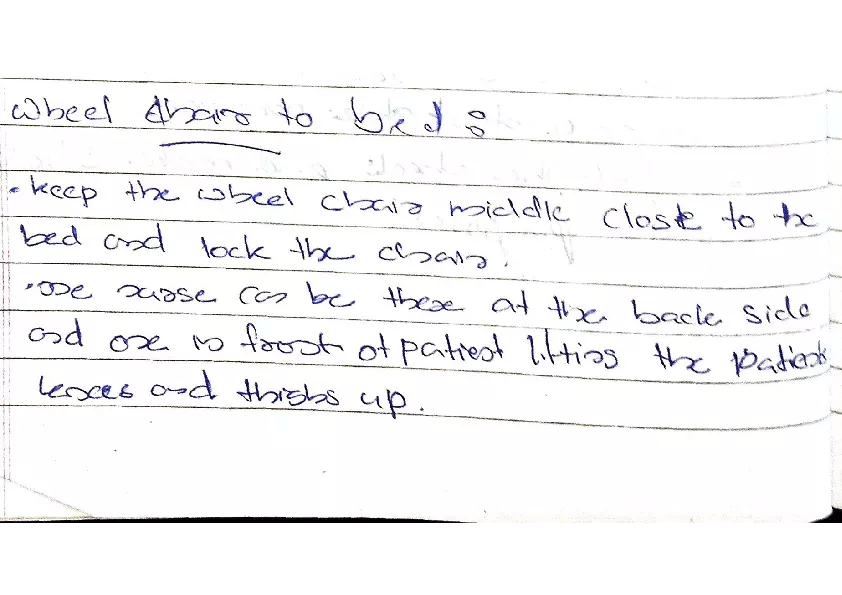 wheel chair to bed :
• keep the wheel chair middle close to the
bed and lock the chair.
• one nurse can be there at the back side
and one in front of patient lifting the patient
knees and thighs up.